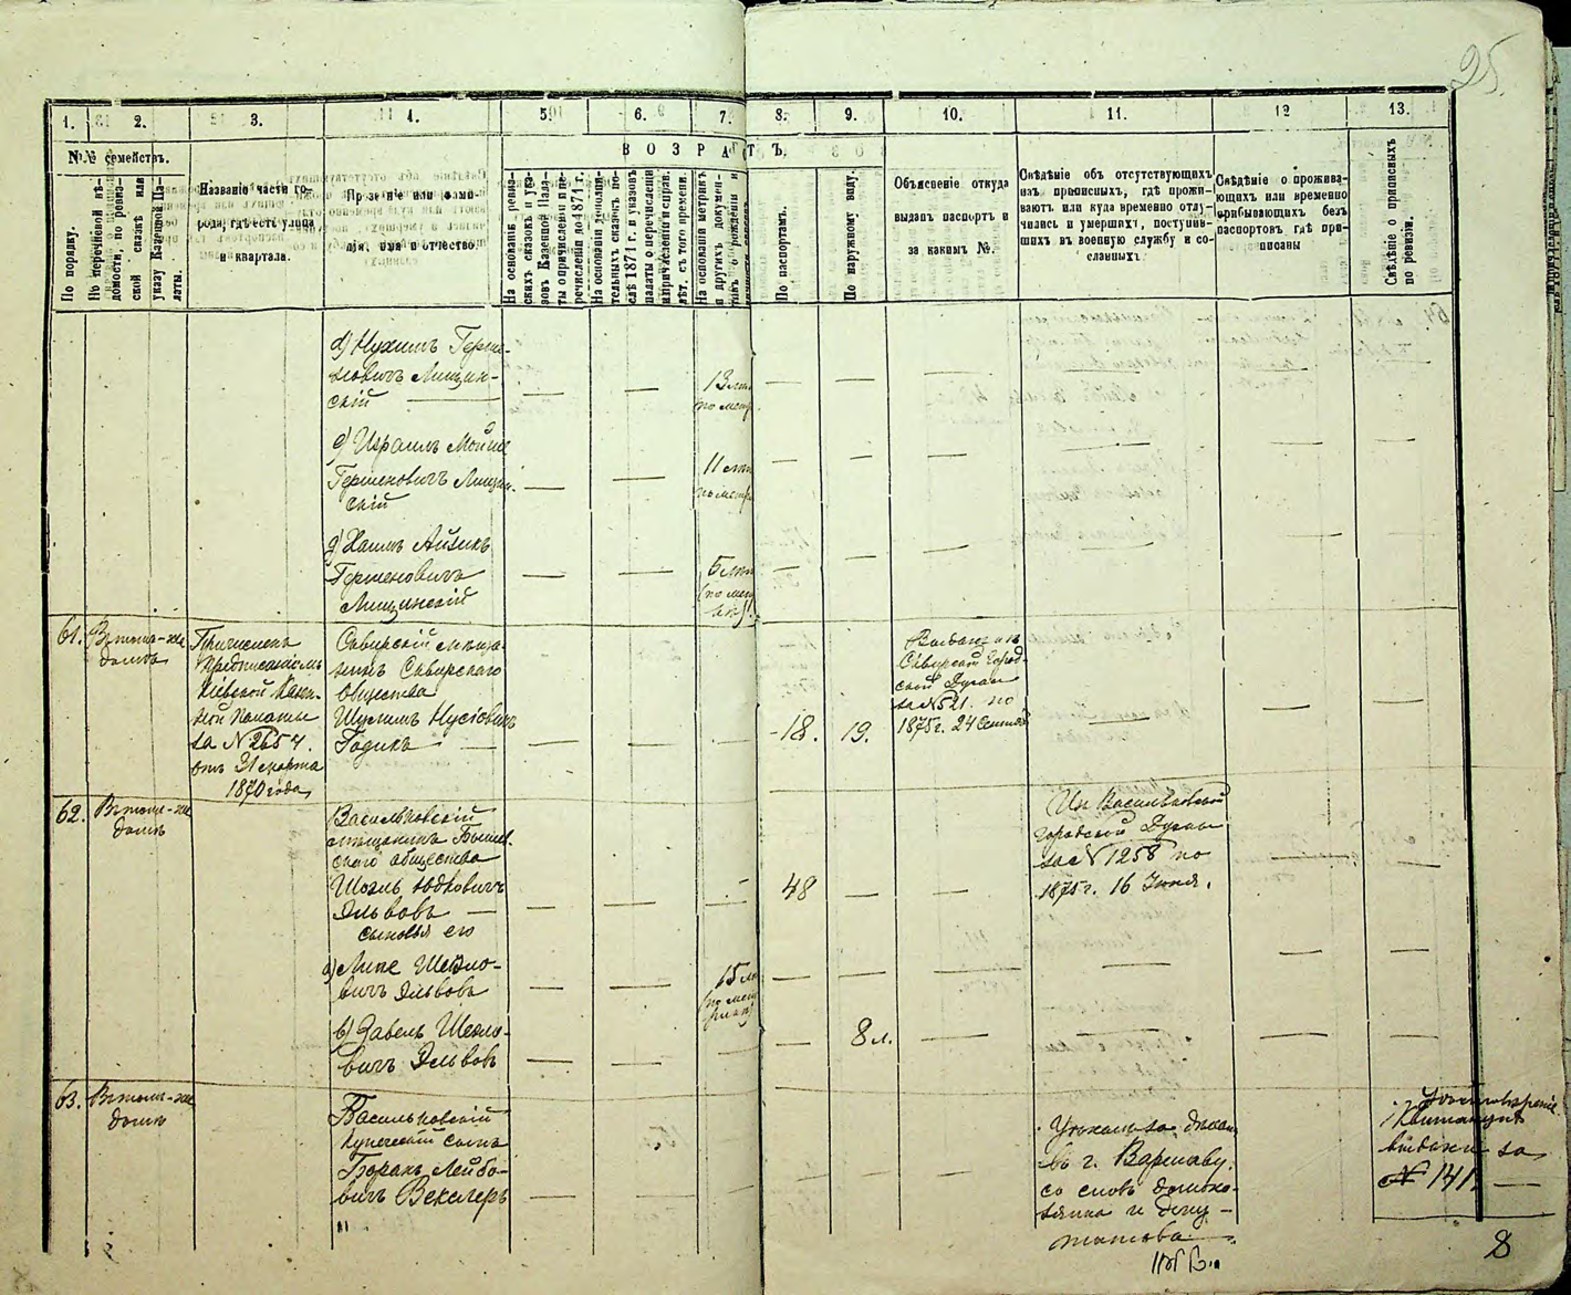 25.
1. 2. 3. 4. 5. 6. 7. 8. 9. 10. 11. 12 13.
№№ семействъ.
По порядку.
въ перечневой вѣ-
домости, по ревиз-
ской сказкѣ или
указу Казенной Па-
латы.
Названіе части го-
рода, гдѣ есть улица
и квартала.
Прозвніе или фами-
лія, имя и отчество.
ВОЗРАСТЪ.
На основаніи ревиз-
скихъ сказокъ и ука-
зовъ Казенной Пала-
ты о причисленіи и пе-
речисленіи до 1871 г.
На основаніи дополни-
тельныхъ сказокъ по-
слѣ 1871 г. и указовъ
палаты о перечисленіи
и причисленіи и справ.
лѣт. съ того времени.
На основаніи метрикъ
и другихъ докумен-
о рожденіи и
По паспортамъ.
По наружному виду.
Объясненіе откуда
выданъ паспортъ и
за какимъ №.
Свѣдѣніе объ отсутствующихъ
изъ приписныхъ, гдѣ прожи-
ваютъ или куда временно отлу-
чились и умершихъ, поступив-
шихъ въ военную службу и со-
сланныхъ
Свѣдѣніе о прожива-
ющихъ или временно
прибывающихъ безъ
паспортовъ, гдѣ при-
писаны
Свѣдѣніе о приписныхъ
по ревизіи.
d) Нухимъ Герше-
новичъ Лищин-
скій — — — 13 лѣтъ
по метр. — — —
e) Израиль Мойше
Гершеновичъ Лищин-
скій — — 11 лѣтъ
по метр. — — — — — —
g) Хаимъ Айзикъ
Гершеновичъ
Лищинскій — — 5 лѣтъ
(по мет — — — — —
61. Въ томъ-же
домѣ
Причисленъ
предписаніемъ
Кіевской Казен-
ной Палаты
за № 2654.
отъ 31 марта
1870 года
Сквирскій мѣща-
нинъ Сквирскаго
общества
Шулимъ Нусіовичъ
Годикъ — — — — 18. 19.
Сквирской Город-
ской Думы
за № 521. по
1875 г. 24 Сентяб
— — —
62. Въ томъ-же
домѣ
Васильковскій
мѣщанинъ
скаго общества
Шоэль Юдковичъ
Эльвовъ — — — — 48 — —
Изъ Васильковской
городской Думы
за № 1258 по
1875 г. 16 Іюня.
— —
сыновья его
a) Липе Шоэло-
вичъ Эльвовъ — — 15 лѣ
(по мет — — — — — —
b) Завель Шоэло-
вичъ Эльвовъ — — — — 8 л. — — — —
63. Въ томъ-же
домѣ
Васильковскій
купеческій сынъ
Лейбо-
вичъ Векслеръ — — — — — —
въ г. Варшаву.
со словъ домохо-
зяина и депу-
татовъ —
Удостовѣреніе
выдано за
№ 141. —
8